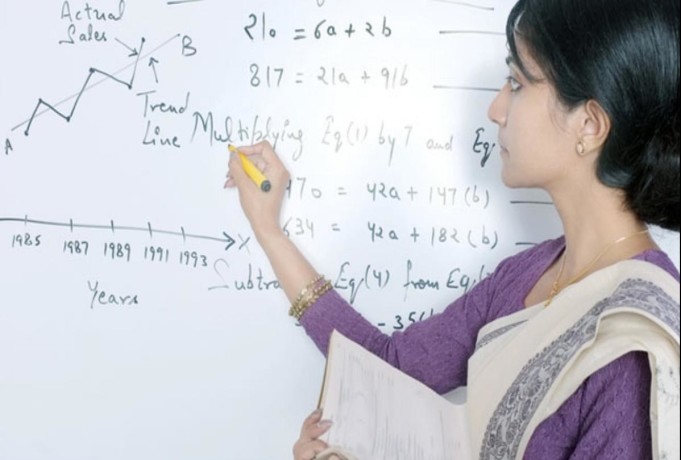 Actual
Sales
B
Trend
Line
A
1985 1987 1989 1991 1993 X
Years
210 = 6a + 2b
817 = 21a + 91b
Multiplying Eq(1) by 7 and Eq
470 = 42a + 147(b)
634 = 42a + 182(b)
Subtra Eq(4) from Eq(
- 35(b